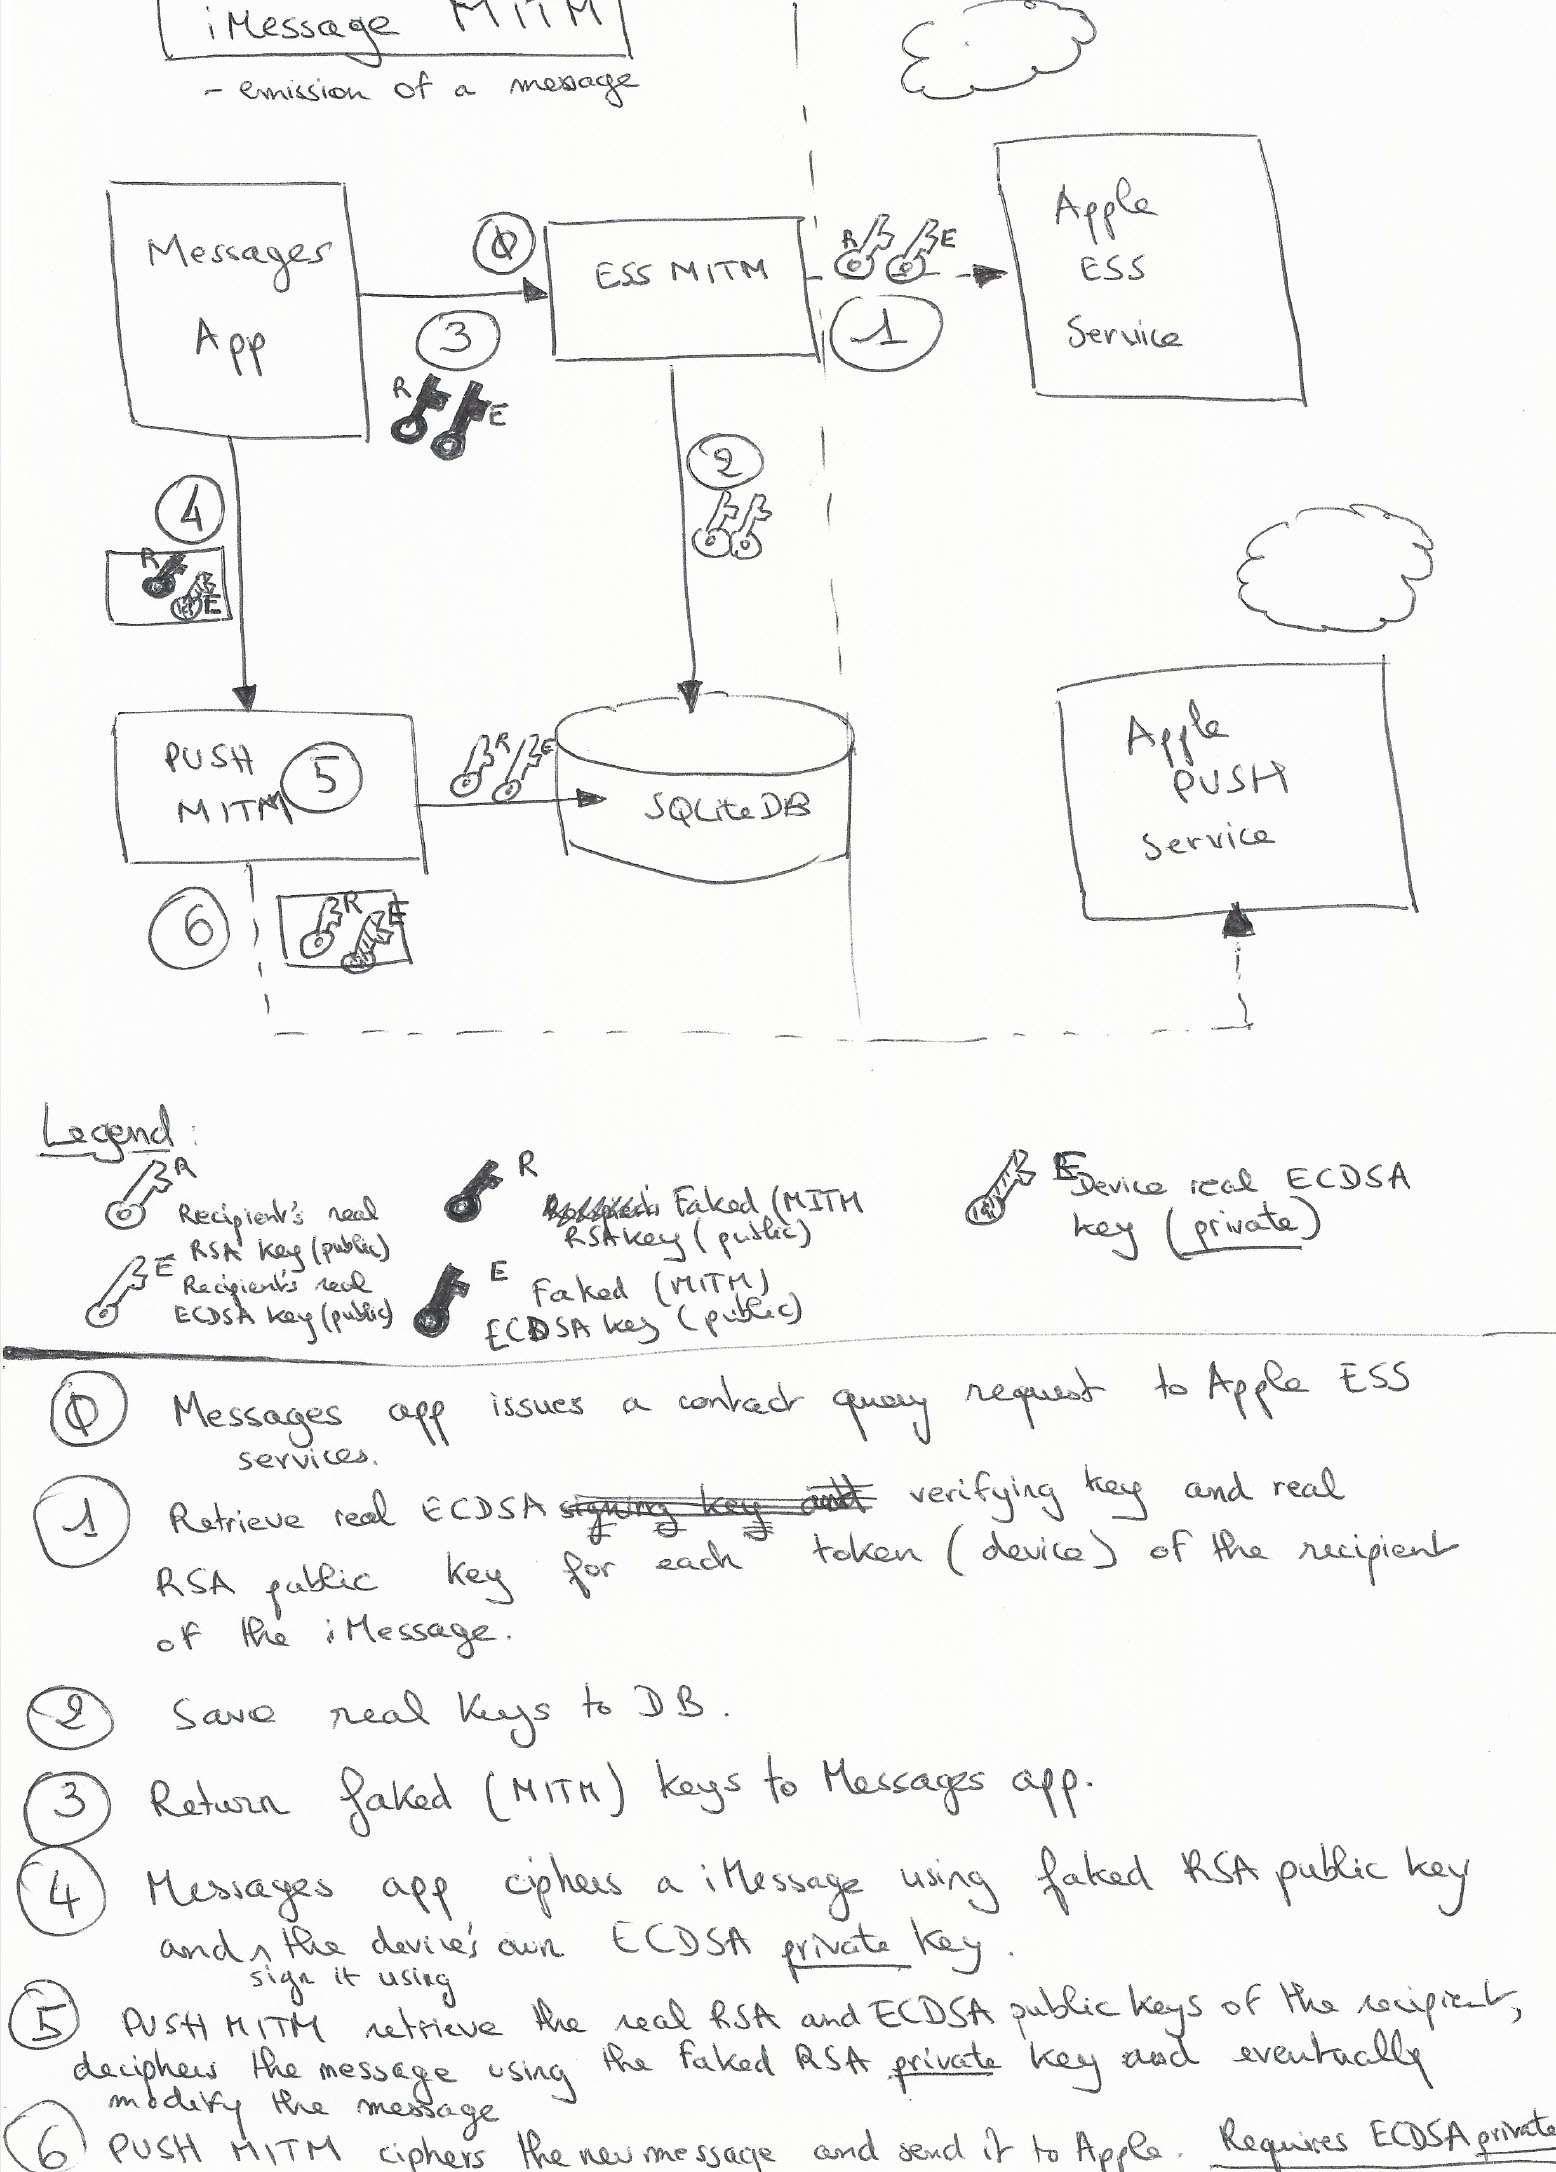 iMessage MITM
- emission of a message
Messages
App
0
ESS MITM
R E
1
Apple
ESS
Service
3
R E
2
4
R
E
PUSH
MITM
5
R E
SQLiteDB
Apple
PUSH
Service
6
R E
Legend:
R
Recipient's real
RSA key (public)
E
Recipient's real
ECDSA key (public)
R
Faked (MITM
RSA key (public)
E
Faked (MITM)
ECDSA key (public)
E
Device real ECDSA
key (private)
0 Messages app issues a contact query request to Apple ESS
services.
1 Retrieve real ECDSA signing key and verifying key and real
RSA public key for each token (device) of the recipient
of the iMessage.
2 Save real keys to DB.
3 Return faked (MITM) keys to Messages app.
4 Messages app ciphers a iMessage using faked RSA public key
and the device's own ECDSA private key.
sign it using
5 PUSH MITM retrieve the real RSA and ECDSA public keys of the recipient,
deciphers the message using the faked RSA private key and eventually
modify the message
6 PUSH MITM ciphers the new message and send it to Apple. Requires ECDSA private